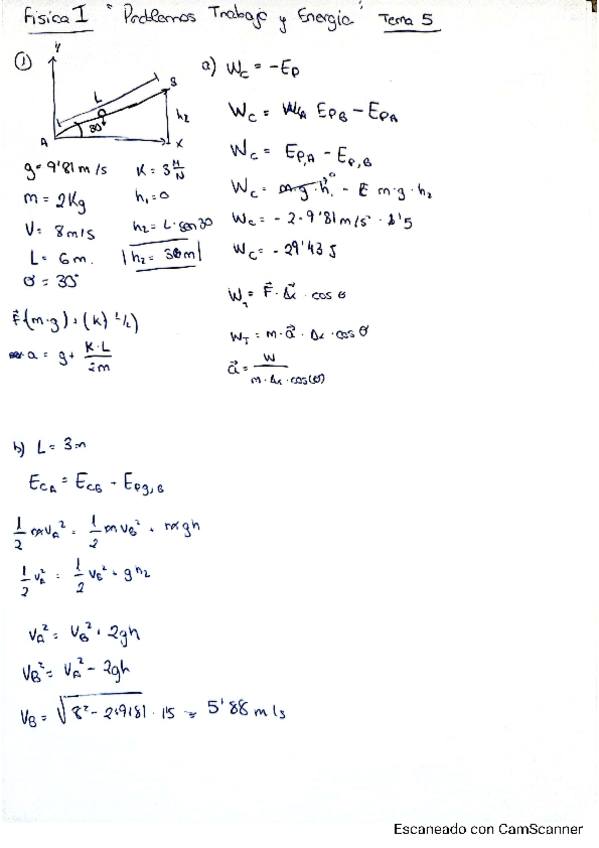 Física I "Problemas Trabajo y Energía" Tema 5
① Y
L B
h₂
A 30° X
g = 9'81 m/s K = 3 M/N
m = 2 Kg h₁ = 0
V = 8 m/s h₂ = L · sen 30
L = 6 m. | h₂ = 30m |
σ = 30°
F(m·g) = (K)
a = g + K·L / 2m
a) Wc = -Ep
Wc = EpB - EpA
Wc = Ep,A - Ep,B
Wc = m·g·h₁⁰ - m·g·h₂
Wc = - 2 · 9'81 m/s · 1'5
Wc = - 29'43 J
W = F⃗ · Δx⃗ · cos θ
WT = m · a⃗ · Δx · cos θ
a⃗ = W / m · Δx · cos(θ)
b) L = 3 m
EcA = EcB - Epg,B
1/2 m vA² = 1/2 m vB² + m g h
1/2 vA² = 1/2 vB² + g h₂
vA² = vB² + 2gh
vB² = vA² - 2gh
vB = √8² - 2·9'81 · 1'5 = 5'88 m/s
Escaneado con CamScanner